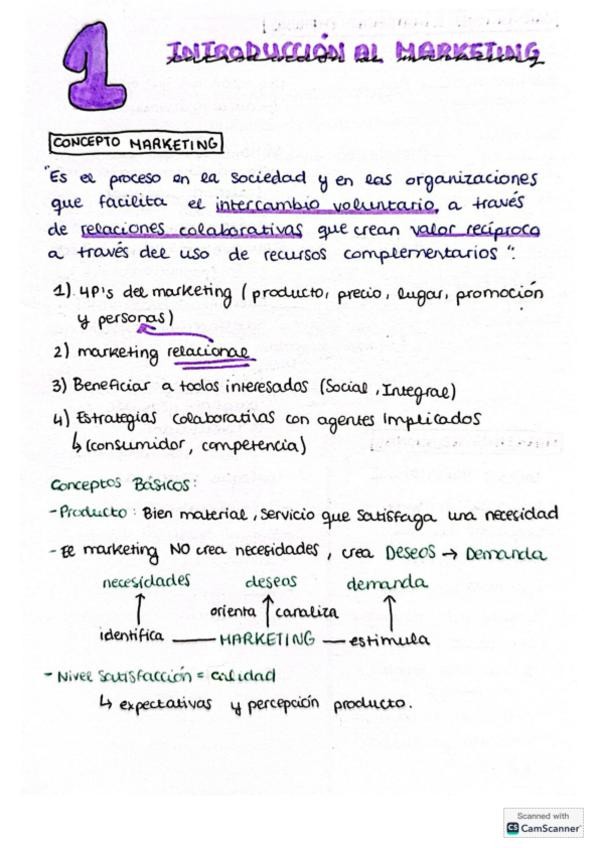 1
INTRODUCCIÓN AL MARKETING
CONCEPTO MARKETING
"Es el proceso en la sociedad y en las organizaciones
que facilita el intercambio voluntario, a través
de relaciones colaborativas que crean valor recíproco
a través del uso de recursos complementarios":
1) 4P's del marketing (producto, precio, lugar, promoción
y personas)
2) marketing relacional
3) Beneficiar a todos interesados (Social, Integral)
4) Estrategias colaborativas con agentes implicados
↳ (consumidor, competencia)
Conceptos Básicos:
- Producto: Bien material, servicio que satisfaga una necesidad
- El marketing NO crea necesidades, crea Deseos → Demanda
necesidades deseos demanda
orienta ↑ canaliza
identifica — MARKETING — estimula
- Nivel satisfacción = calidad
↳ expectativas y percepción producto.
Scanned with
CS CamScanner